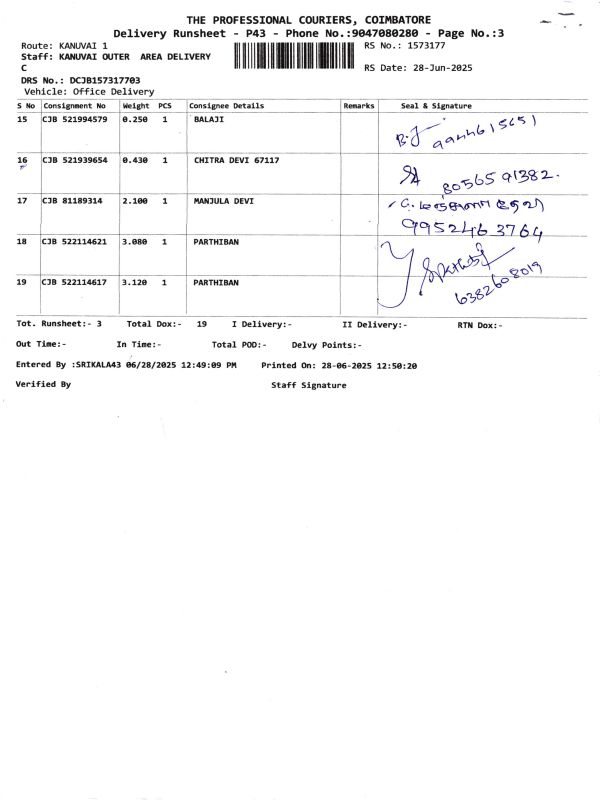 THE PROFESSIONAL COURIERS, COIMBATORE
Delivery Runsheet - P43 - Phone No.:9047080280 - Page No.:3
Route: KANUVAI 1
RS No.: 1573177
Staff: KANUVAI OUTER AREA DELIVERY
C
RS Date: 28-Jun-2025
DRS No.: DCJB157317703
Vehicle: Office Delivery
S No Consignment No Weight PCS Consignee Details Remarks Seal & Signature
15 CJB 521994579 0.250 1 BALAJI
9944615651
16 CJB 521939654 0.430 1 CHITRA DEVI 67117
8056591382.
17 CJB 81189314 2.100 1 MANJULA DEVI
9952463764
18 CJB 522114621 3.080 1 PARTHIBAN
6382608019
19 CJB 522114617 3.120 1 PARTHIBAN
Tot. Runsheet:- 3 Total Dox:- 19 I Delivery:- II Delivery:- RTN Dox:-
Out Time:- In Time:- Total POD:- Delvy Points:-
Entered By :SRIKALA43 06/28/2025 12:49:09 PM Printed On: 28-06-2025 12:50:20
Verified By Staff Signature